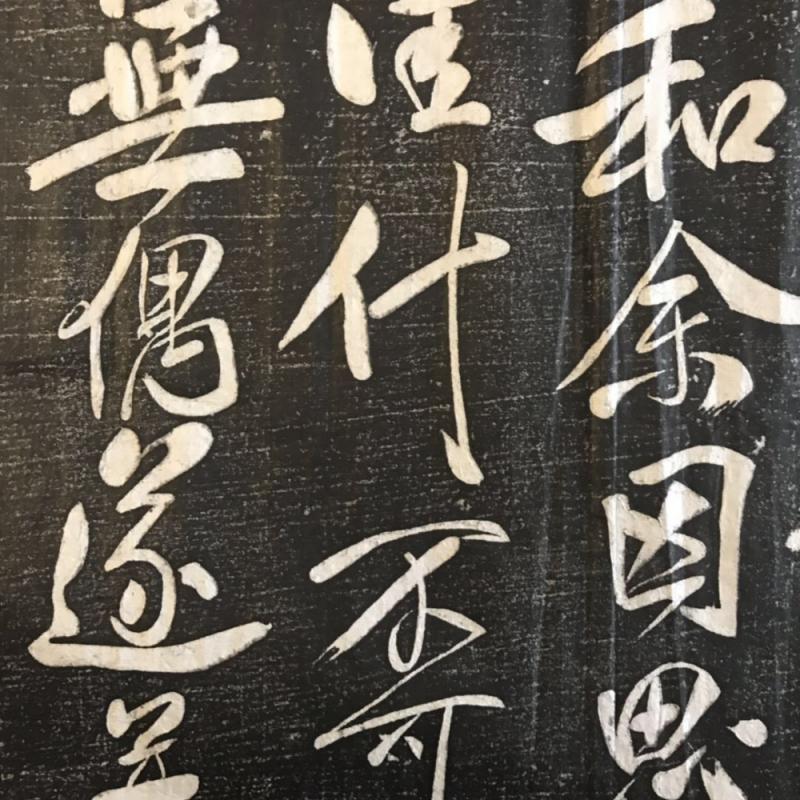 和余因思
佳什不可
無偶遂